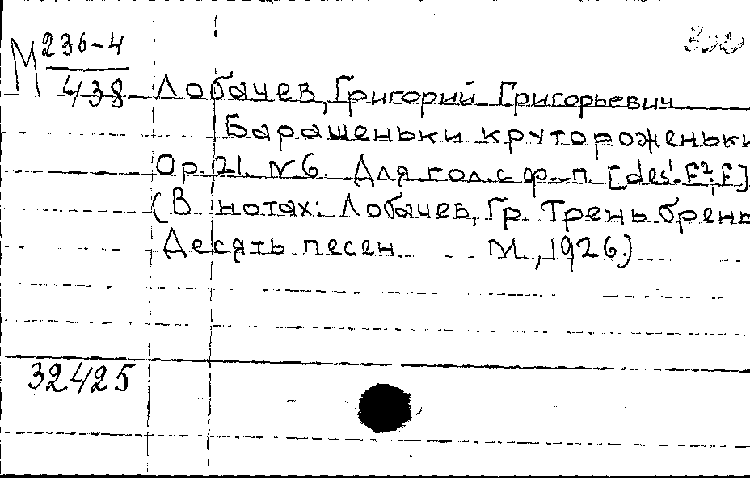 М 236-4
438
Лобачев, Григорий Григорьевич
Барашеньки крутороженьки
Ор. 21. N 6. Для гол. с ф.-п. [des¹-F²; F]
(В нотах: Лобачев, Гр. Трень брень
Десять песен М., 1926.)
32425